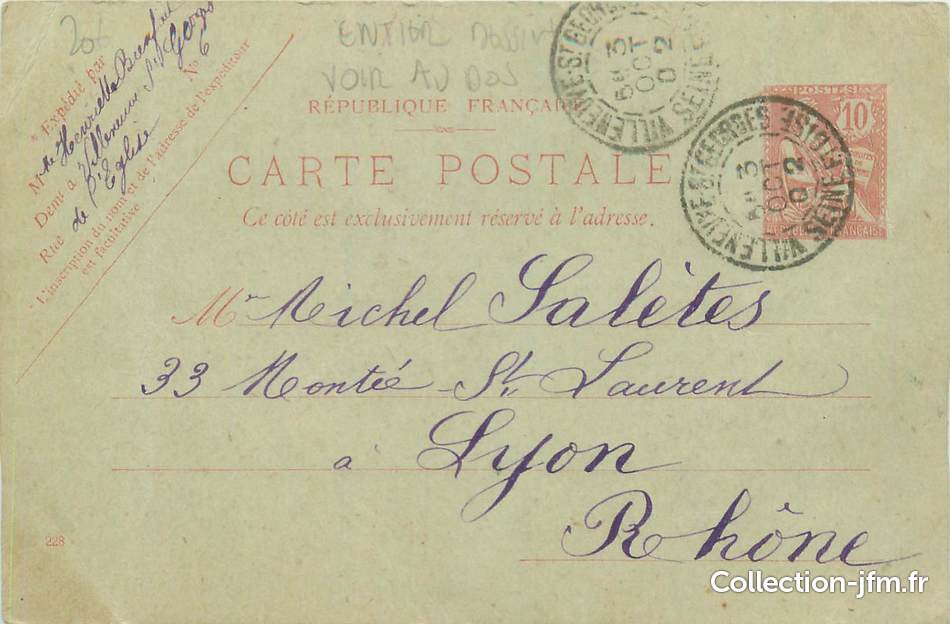 20€
ENTIER
VOIR AU DOS
* Expédié par
Mlle Henriette
Demt à Villeneuve St Georges
Rue de l'Eglise No 6
* L'inscription du nom et de l'adresse de l'expéditeur
est facultative
RÉPUBLIQUE FRANÇAISE
CARTE POSTALE
Ce côté est exclusivement réservé à l'adresse.
VILLENEUVE-ST GEORGES
3
OCT
02
SEINE
POSTES
10
RÉPUBLIQUE FRANÇAISE
VILLENEUVE-ST GEORGES
3
OCT
02
SEINE-ET-OISE
Mr Michel Salètes
33 Montée St Laurent
à Lyon
Rhône
228
Collection-jfm.fr